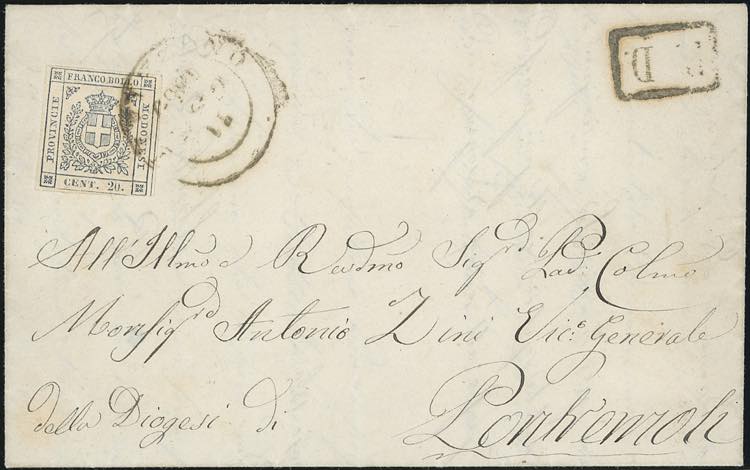 FRANCO BOLLO
PROVINCIE
MODONESI
CENT. 20.
P D
All'Illmo e Revdmo Sigrd Pad: Colmo
Monsigrd Antonio Zini Vico Generale
della Diogesi di
Pontremoli